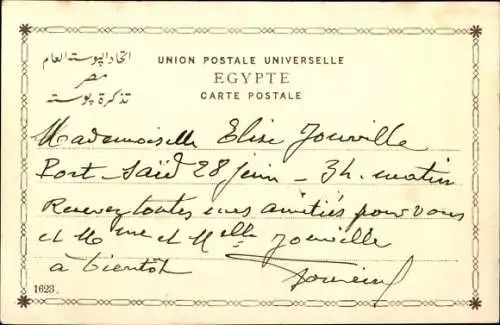 اتحاد البوستة العام
مصر
تذكرة بوستة
UNION POSTALE UNIVERSELLE
EGYPTE
CARTE POSTALE
Mademoiselle Elise Jouville
Port-Saïd 28 juin - 3h. matin
Recevez toutes mes amitiés pour vous
et Mme et Mlle Jouville
à bientôt
1623.